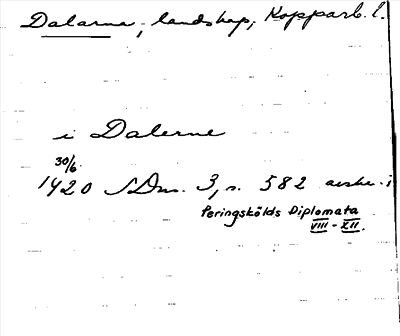 Dalarne, landskap, Kopparb. l.
i Dalerne
30/6.
1420 SDns. 3, s. 582 avskr. i
Peringskölds Diplomata
VIII - XII.